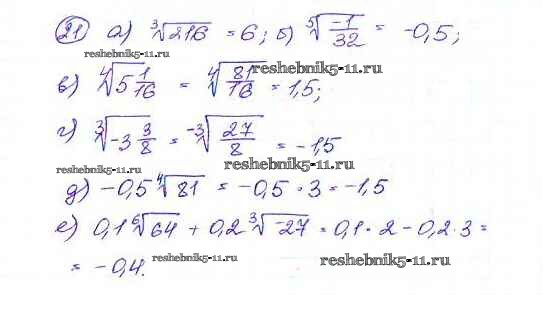 21 а) ³√216 = 6; б) ⁵√(-1/32) = -0,5;
reshebnik5-11.ru reshebnik5-11.ru
в) ⁴√(5 1/16) = ⁴√(81/16) = 1,5;
г) ³√(-3 3/8) = -³√(27/8) = -1,5
reshebnik5-11.ru reshebnik5-11.ru
д) -0,5 ⁴√81 = -0,5 · 3 = -1,5
е) 0,1 ⁶√64 + 0,2 ³√-27 = 0,1 · 2 - 0,2 · 3 =
= -0,4.
reshebnik5-11.ru reshebnik5-11.ru